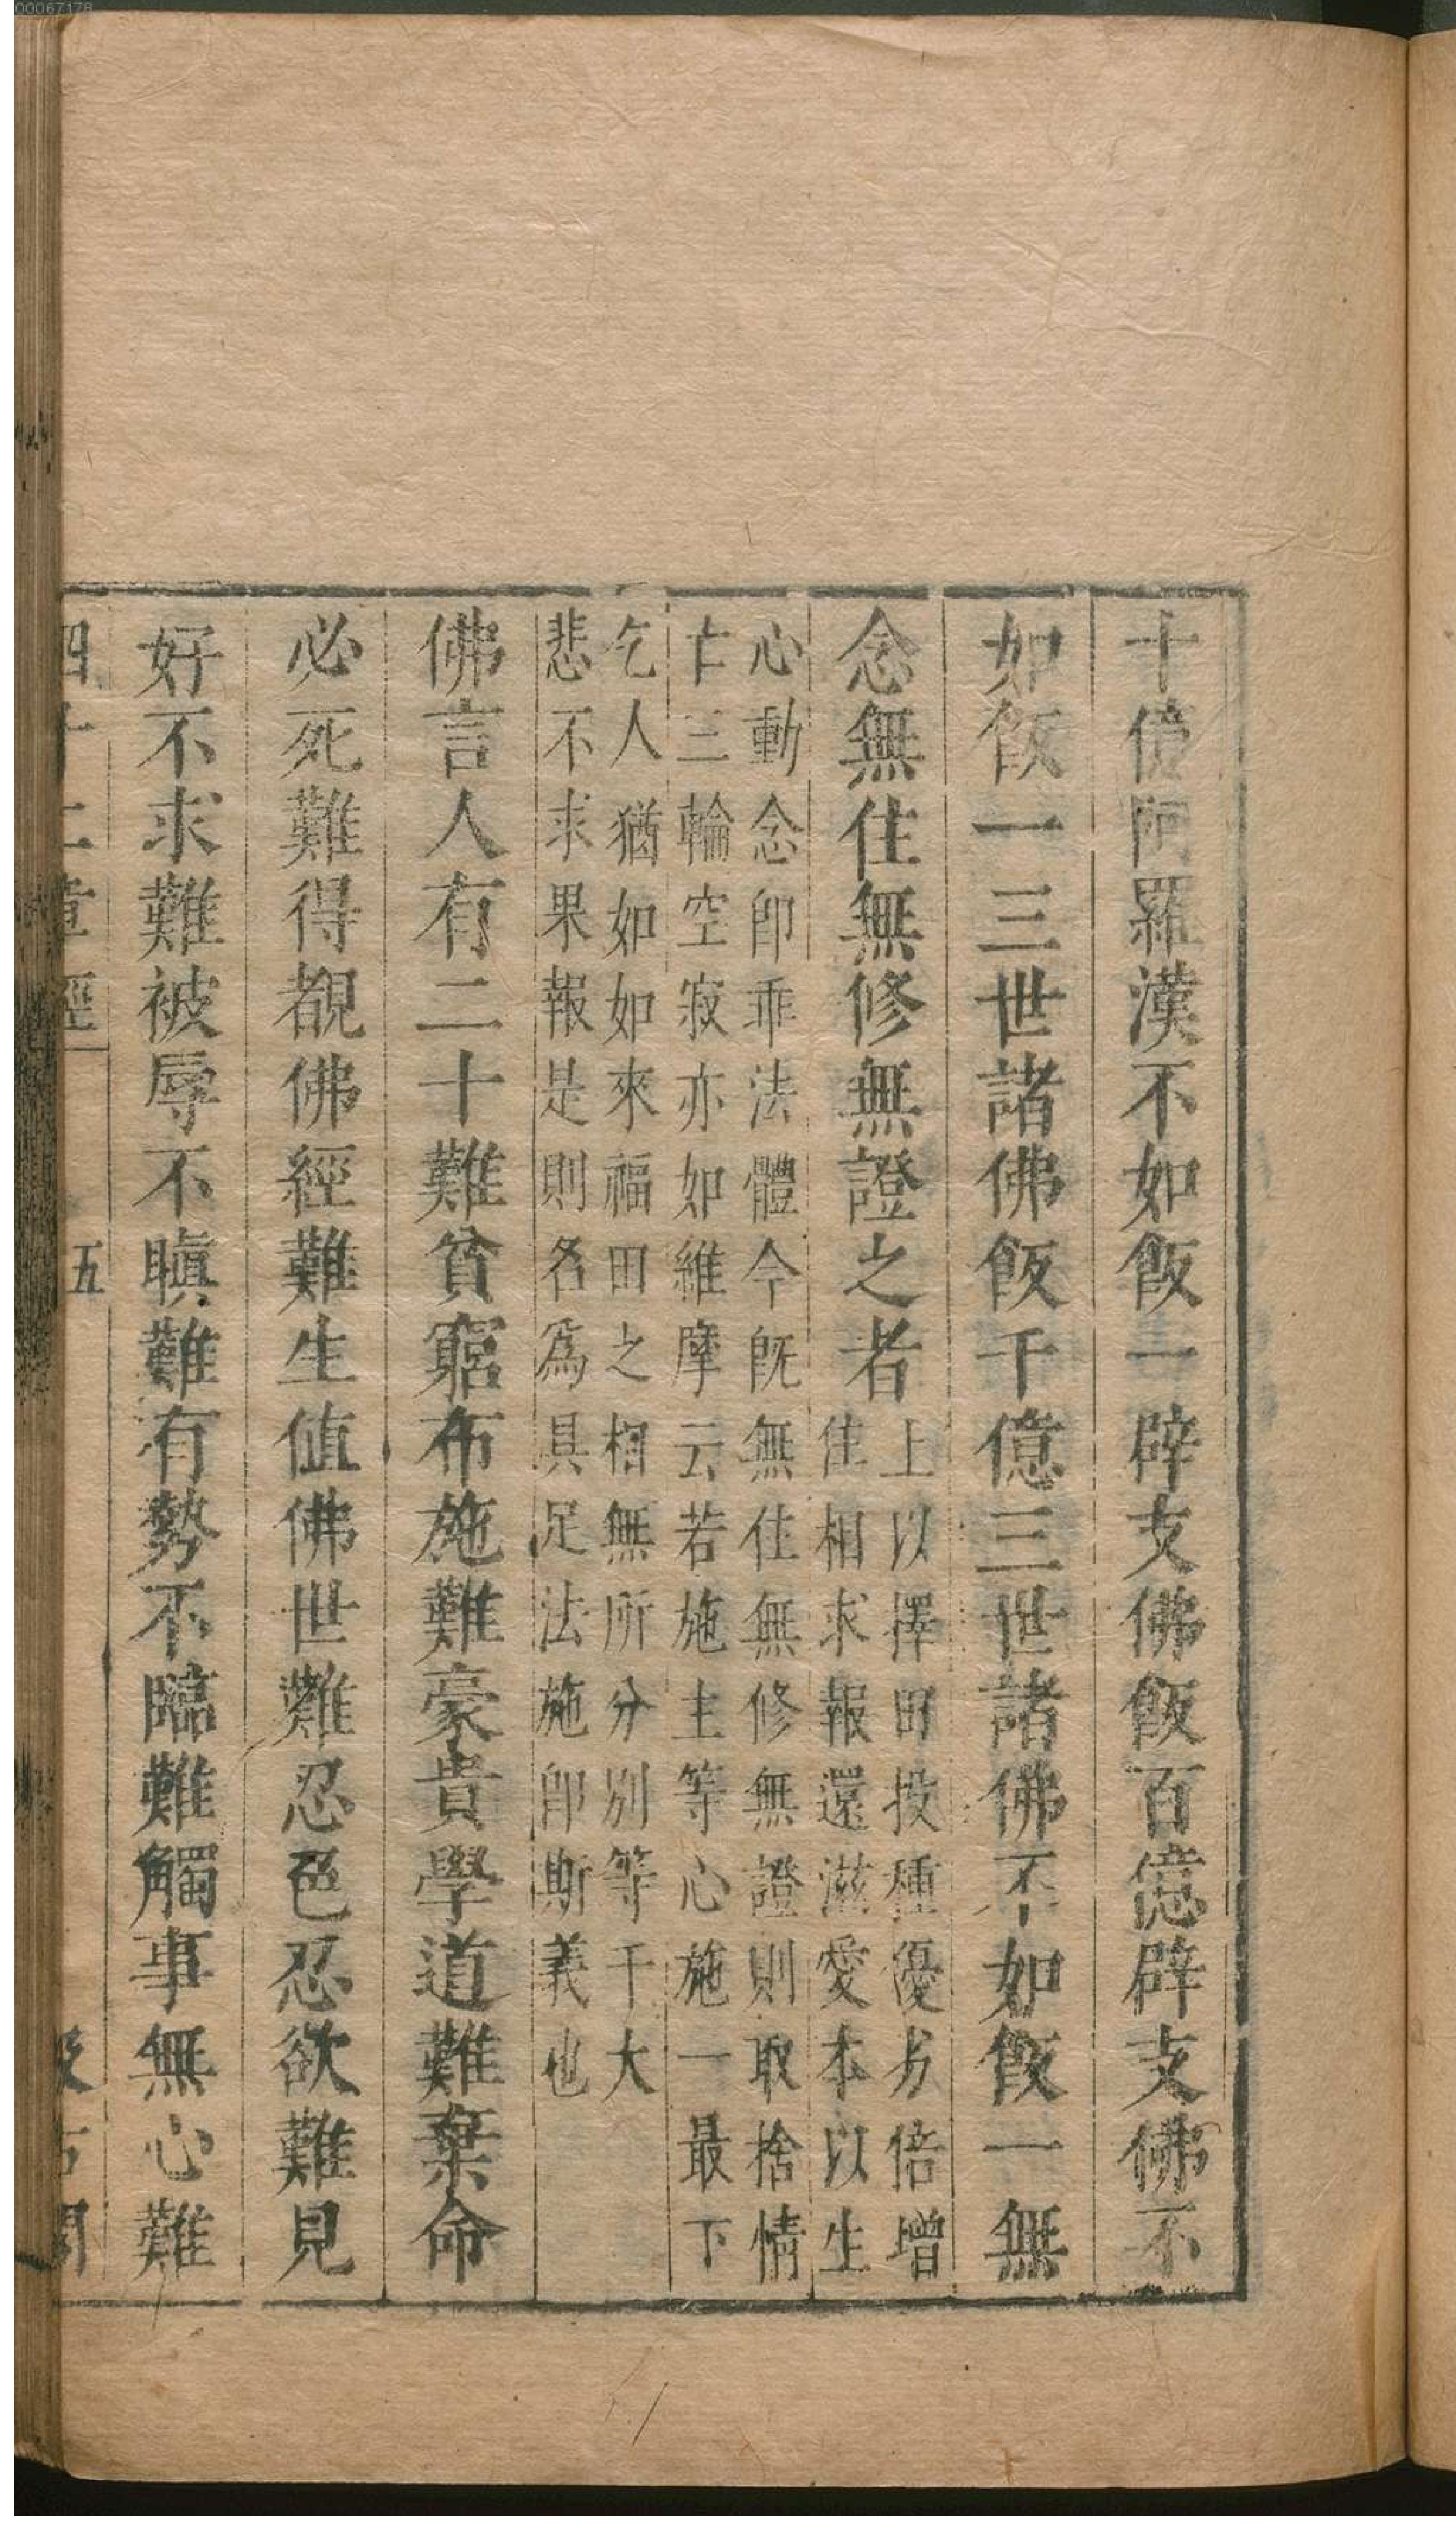 十億阿羅漢不如飯一辟支佛飯百億辟支佛不
如飯一三世諸佛飯千億三世諸佛不如飯一無
念無住無修無證之者
上以擇田投種優劣倍增
住相求報還滋愛本以生
心動念卽乖法體今旣無住無修無證則取捨情
亡三輪空寂亦如維摩云若施主等心施一最下
乞人猶如如來福田之相無所分別等于大
悲不求果報是則名爲具足法施卽斯義也
佛言人有二十難貧窮布施難豪貴學道難棄命
必死難得覩佛經難生値佛世難忍色忍欲難見
好不求難被辱不瞋難有勢不臨難觸事無心難
四十二章經
五
汲古閣
00067178